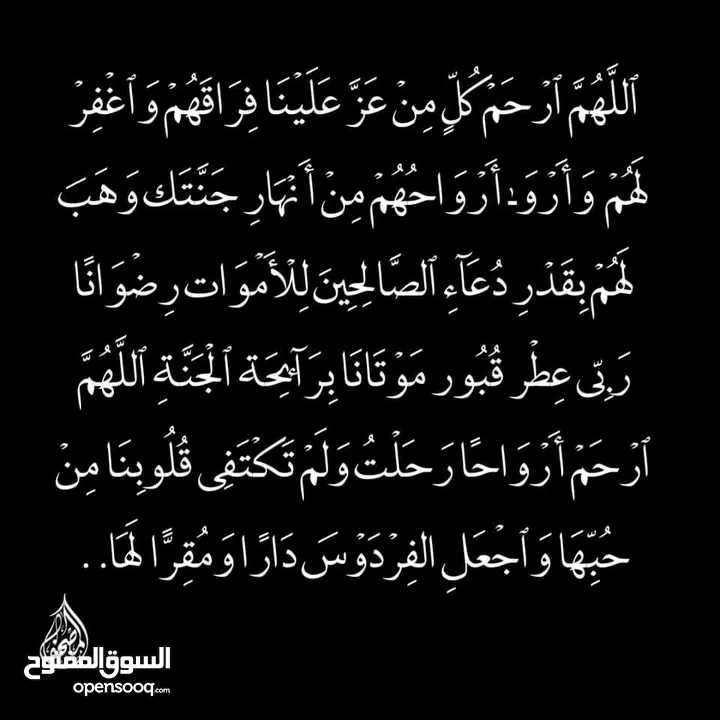 ٱللَّهُمَّ ٱرْحَمْ كُلٍّ مِنْ عَزَّ عَلَيْنَا فِرَاقَهُمْ وَٱغْفِرْ
لَهُمْ وَأَرْوِ أَرْوَاحُهُمْ مِنْ أَنْهَارِ جَنَّتَك وَهَبَ
لَهُمْ بِقَدْرِ دُعَآءِ ٱلصَّالِحِينَ لِلْأَمْوَات رِضْوَانًا
رَبِّى عِطْر قُبُور مَوْتَانَا بِرَآئِحَة ٱلْجَنَّةِ ٱللَّهُمَّ
ٱرْحَمْ أَرْوَاحًا رَحَلْتُ وَلَمْ تَكْتَفِى قُلُوبِنَا مِنْ
حُبِّهَا وَٱجْعَلِ الفِرْدَوْسَ دَارًا وَمُقِرًّا لَهَا..
السوق المفتوح
opensooq.com